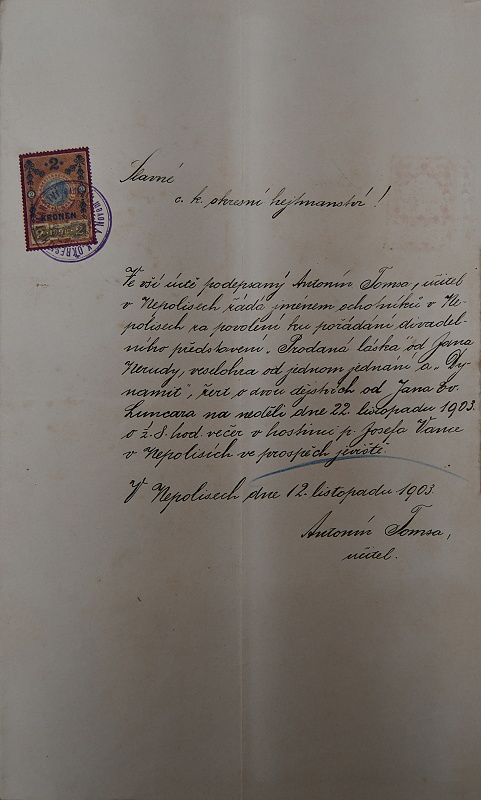 2
KRONEN
2 2
Slavné
c. k. okresní hejtmanství!
Ve vší úctě podepsaný Antonín Tomsa, učitel
v Nepolisech žádá jménem ochotníků v Ne-
polisech za povolení ku pořádání divadel-
ního představení „Prodaná láska" od Jana
Nerudy, veselohra o jednom jednání a „Dy-
namit", žert o dvou dějstvích od Jana Ev.
na neděli dne 22. listopadu 1903.
o ½ 8. hod. večer v hostinci p. Josefa Vance
v Nepolisích ve prospěch jeviště.
V Nepolisech dne 12. listopadu 1903.
Antonín Tomsa,
učitel.